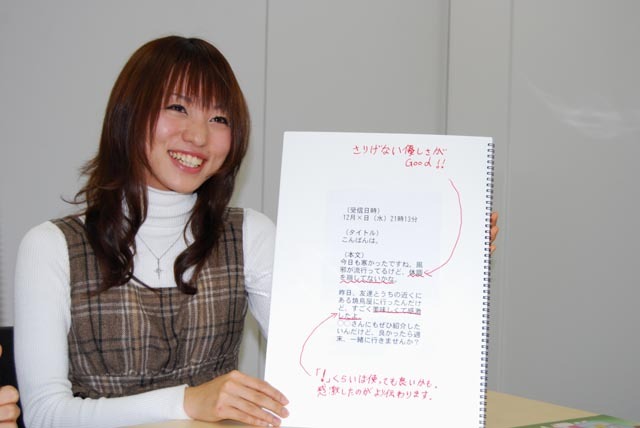 さりげない優しさが
Good!!
（受信日時）
12月×日（水）21時13分
（タイトル）
こんばんは。
（本文）
今日も寒かったですね。風
邪が流行ってるけど、体調
を崩してないかな。
昨日、友達とうちの近くに
ある焼鳥屋に行ったんだけ
ど、すごく美味しくて感激
したよ。
○○さんにもぜひ紹介した
いんだけど、良かったら週
末、一緒に行きませんか？
「！」くらいは使っても良いかも。
感激したのがより伝わります。